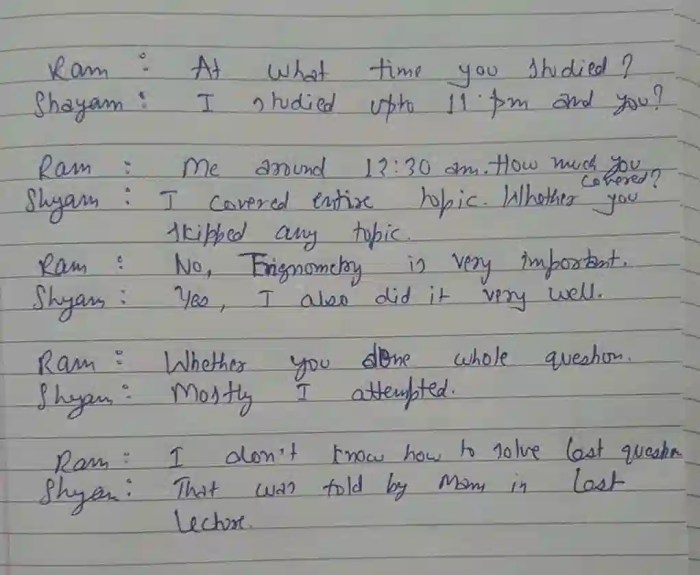 Ram : At what time you studied ?
Shayam : I studied upto 11 pm and you ?
Ram : Me around 12:30 am. How much you
covered ?
Shyam : I covered entire topic. Whether you
skipped any topic.
Ram : No, Trignometry is very important.
Shyam : Yes, I also did it very well.
Ram : Whether you done whole question.
Shyam : Mostly I attempted.
Ram : I don't know how to solve last question
Shyam : That was told by Mam in last
Lecture.